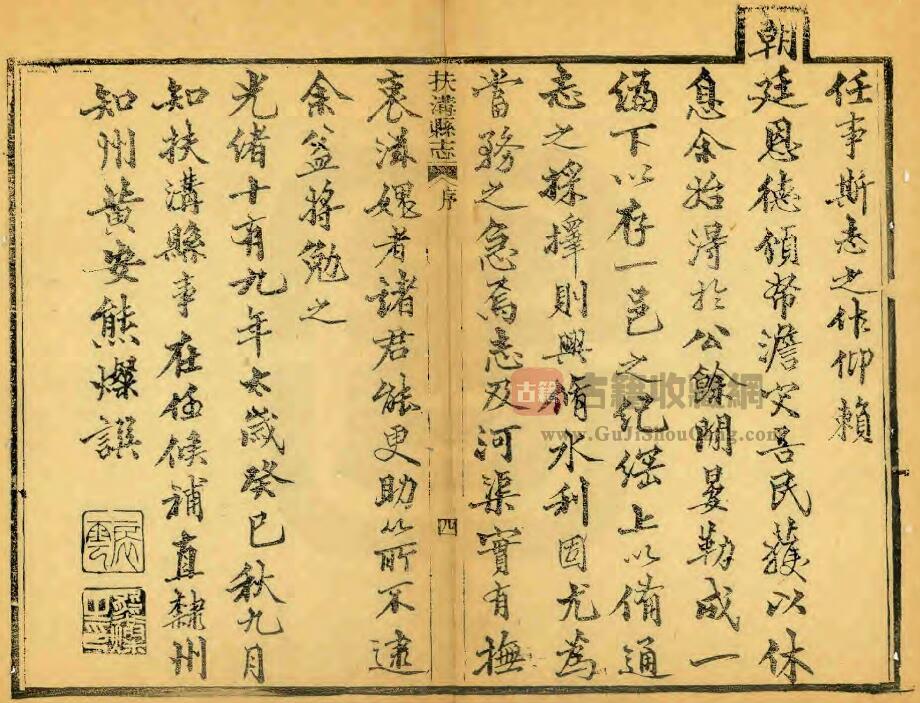 任事斯志之作仰賴
朝廷恩德傾帑澹災吾民獲以休
息余始得於公餘閒晏勒成一
編下以存一邑之紀綱上以備通
志之採擇則興脩水利固尤為
當務之急焉志及河渠實有撫
扶溝縣志 序 四
衷滋媿者諸君能更助以所不逮
余益將勉之
光緒十有九年太歲癸巳秋九月
知扶溝縣事在任候補直隸州
知州黃安熊燦譔
古籍
古籍收藏網
www.GuJiShouCang.com